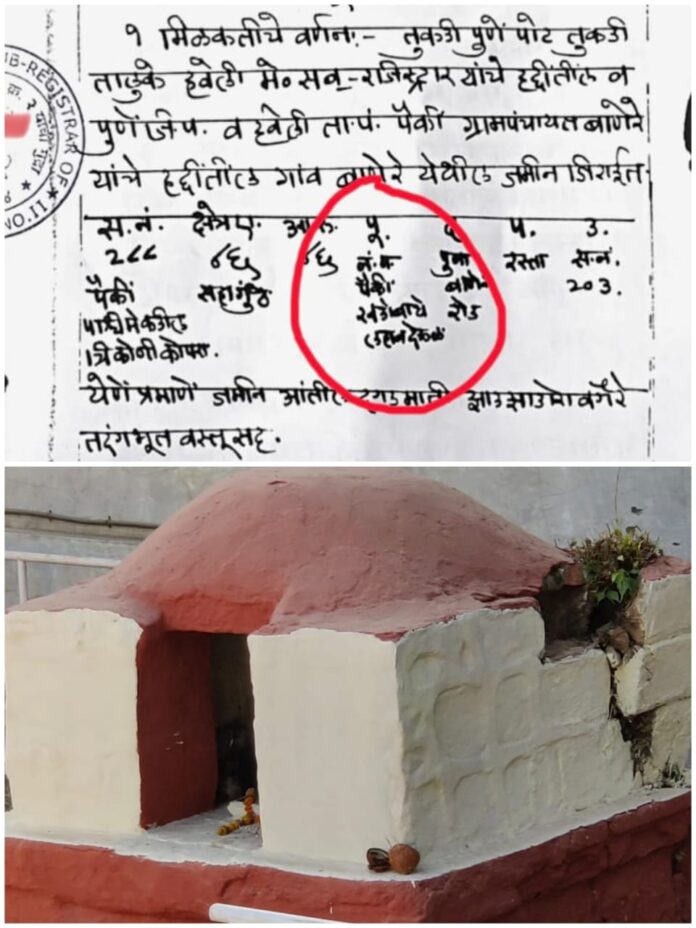 १ मिळकतीचे वर्णन:- तुकडी पुणें पोट तुकडी
तालुके हवेली मे० सब-रजिस्ट्रार यांचे हद्दींतील व
पुणें जि.प. व हवेली ता.पं. पैकी ग्रामपंचायत बाणेरे
यांचे हद्दींतील गांव बाणेरे येथील जमीन जिराईत.
स.नं. क्षेत्र ए. पू. द. प. उ.
२८८ पुणा रस्ता स.नं.
पैकी सहागुंठे पैकी बाणेर २०३.
पश्चिमेकडील खंडोबाचे रोड
त्रिकोनी कोपरा. लहान देऊळ
येणें प्रमाणें जमीन आंतील दगड माती झाडझाडोरा वगैरे
तदंगभूत वस्तूसह.
UB-REGISTRAR OF
NO.II